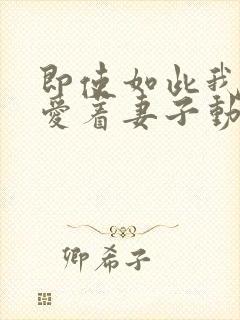 即使如此我
爱着妻子動
卿希子